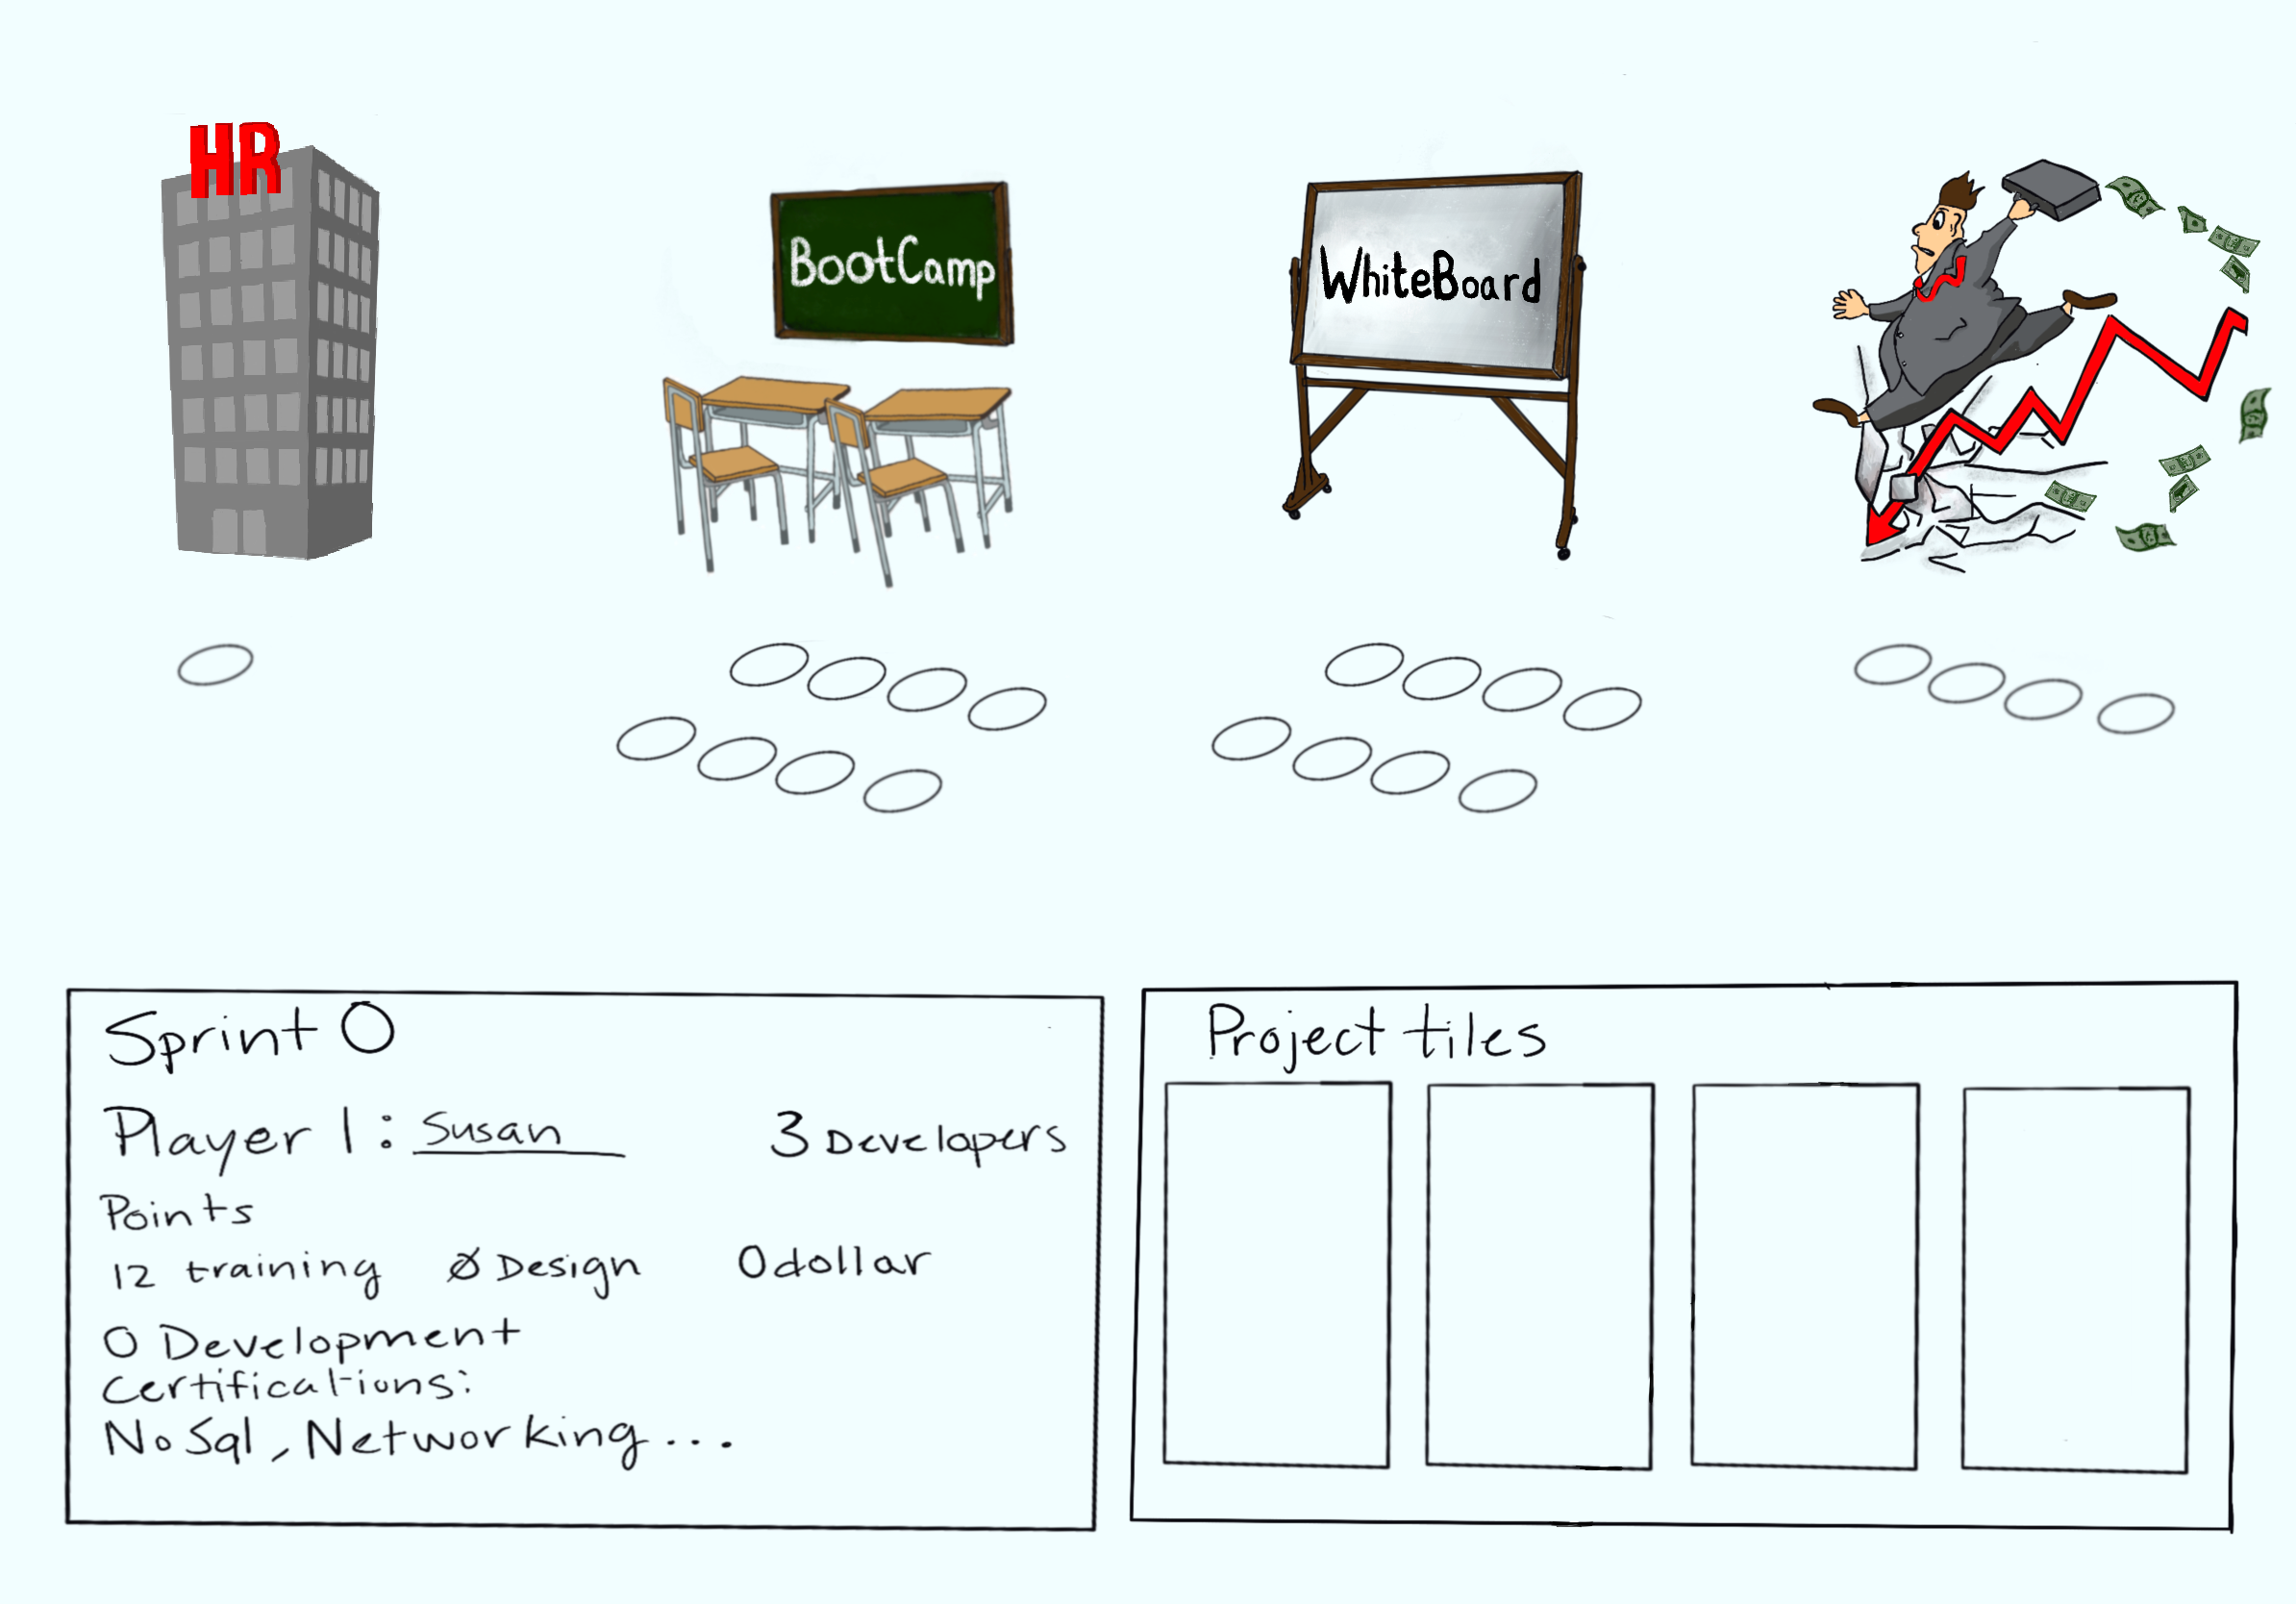 HR
BootCamp
WhiteBoard
Sprint 0
Player 1: Susan 3 Developers
Points
12 training Ø Design 0 dollar
0 Development
Certifications:
NoSql, Networking...
Project tiles